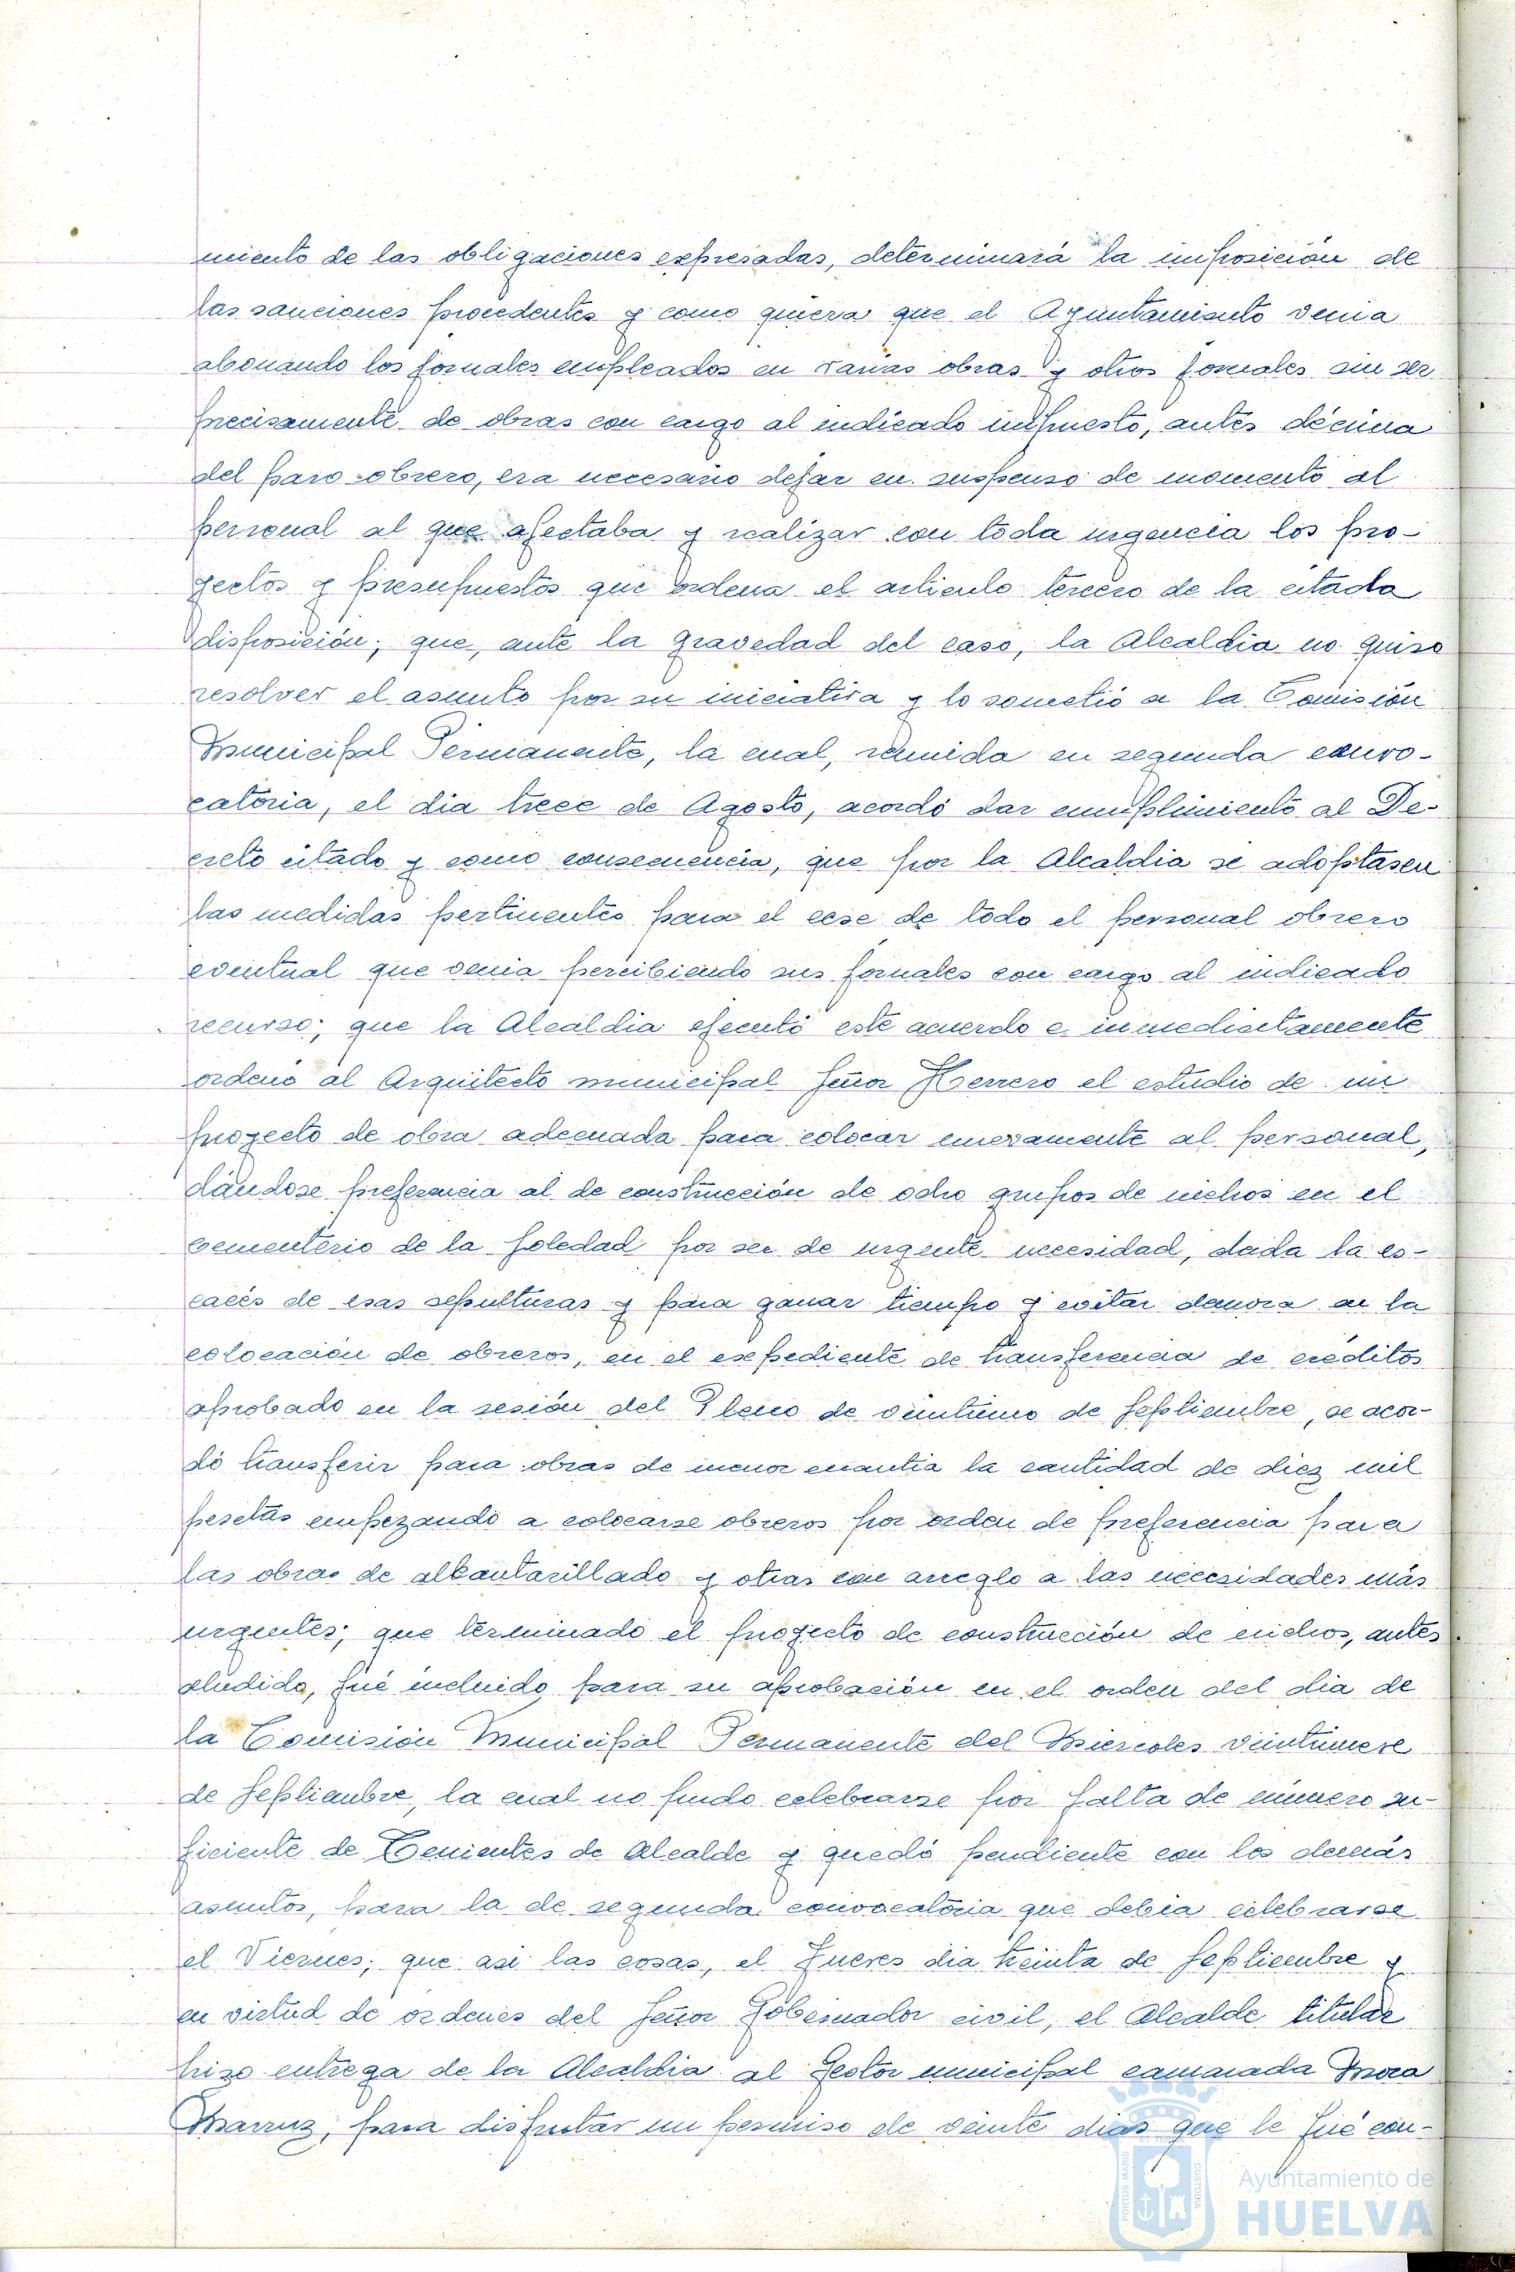 miento de las obligaciones expresadas, determinará la imposición de
las sanciones procedentes y como quiera que el Ayuntamiento venia
abonando los jornales empleados en varias obras y otros jornales sin ser
precisamente de obras con cargo al indicado impuesto, antes décima
del paro obrero, era necesario dejar en suspenso de momento al
personal al que afectaba y realizar con toda urgencia los pro-
yectos y presupuestos que ordena el articulo tercero de la citada
disposición; que, ante la gravedad del caso, la Alcaldia no quiso
resolver el asunto por su iniciativa y lo sometió a la Comisión
Municipal Permanente, la cual, reunida en segunda convo-
catoria, el dia trece de Agosto, acordó dar cumplimiento al De-
creto citado y como consecuencia, que por la Alcaldia se adoptasen
las medidas pertinentes para el cese de todo el personal obrero
eventual que venia percibiendo sus jornales con cargo al indicado
recurso; que la Alcaldia ejecutó este acuerdo e inmediatamente
ordenó al Arquitecto municipal Señor Herrero el estudio de un
proyecto de obra adecuada para colocar nuevamente al personal,
dándose preferencia al de construcción de ocho grupos de nichos en el
cementerio de la Soledad por ser de urgente necesidad, dada la es-
casés de esas sepulturas y para ganar tiempo y evitar demora en la
colocación de obreros, en el expediente de transferencia de créditos
aprobado en la sesión del Pleno de veintiuno de Septiembre, se acor-
dó transferir para obras de menor cuantia la cantidad de diez mil
pesetas empezando a colocarse obreros por orden de preferencia para
las obras de alcantarillado y otras con arreglo a las necesidades más
urgentes; que terminado el proyecto de construcción de nichos, antes
aludido, fué incluido para su aprobación en el orden del dia de
la Comisión Municipal Permanente del Miercoles veintinueve
de Septiembre, la cual no pudo celebrarse por falta de número su-
ficiente de Tenientes de Alcalde y quedó pendiente con los demás
asuntos, para la de segunda convocatoria que debia celebrarse
el Viernes; que asi las cosas, el Jueves dia treinta de Septiembre y
en virtud de órdenes del Señor Gobernador civil, el Alcalde titular
hizo entrega de la Alcaldia al Gestor municipal camarada Mora
Marruz, para disfrutar un permiso de veinte dias que le fué con-
PORTUS MARIS CUSTODIA
Ayuntamiento de
HUELVA